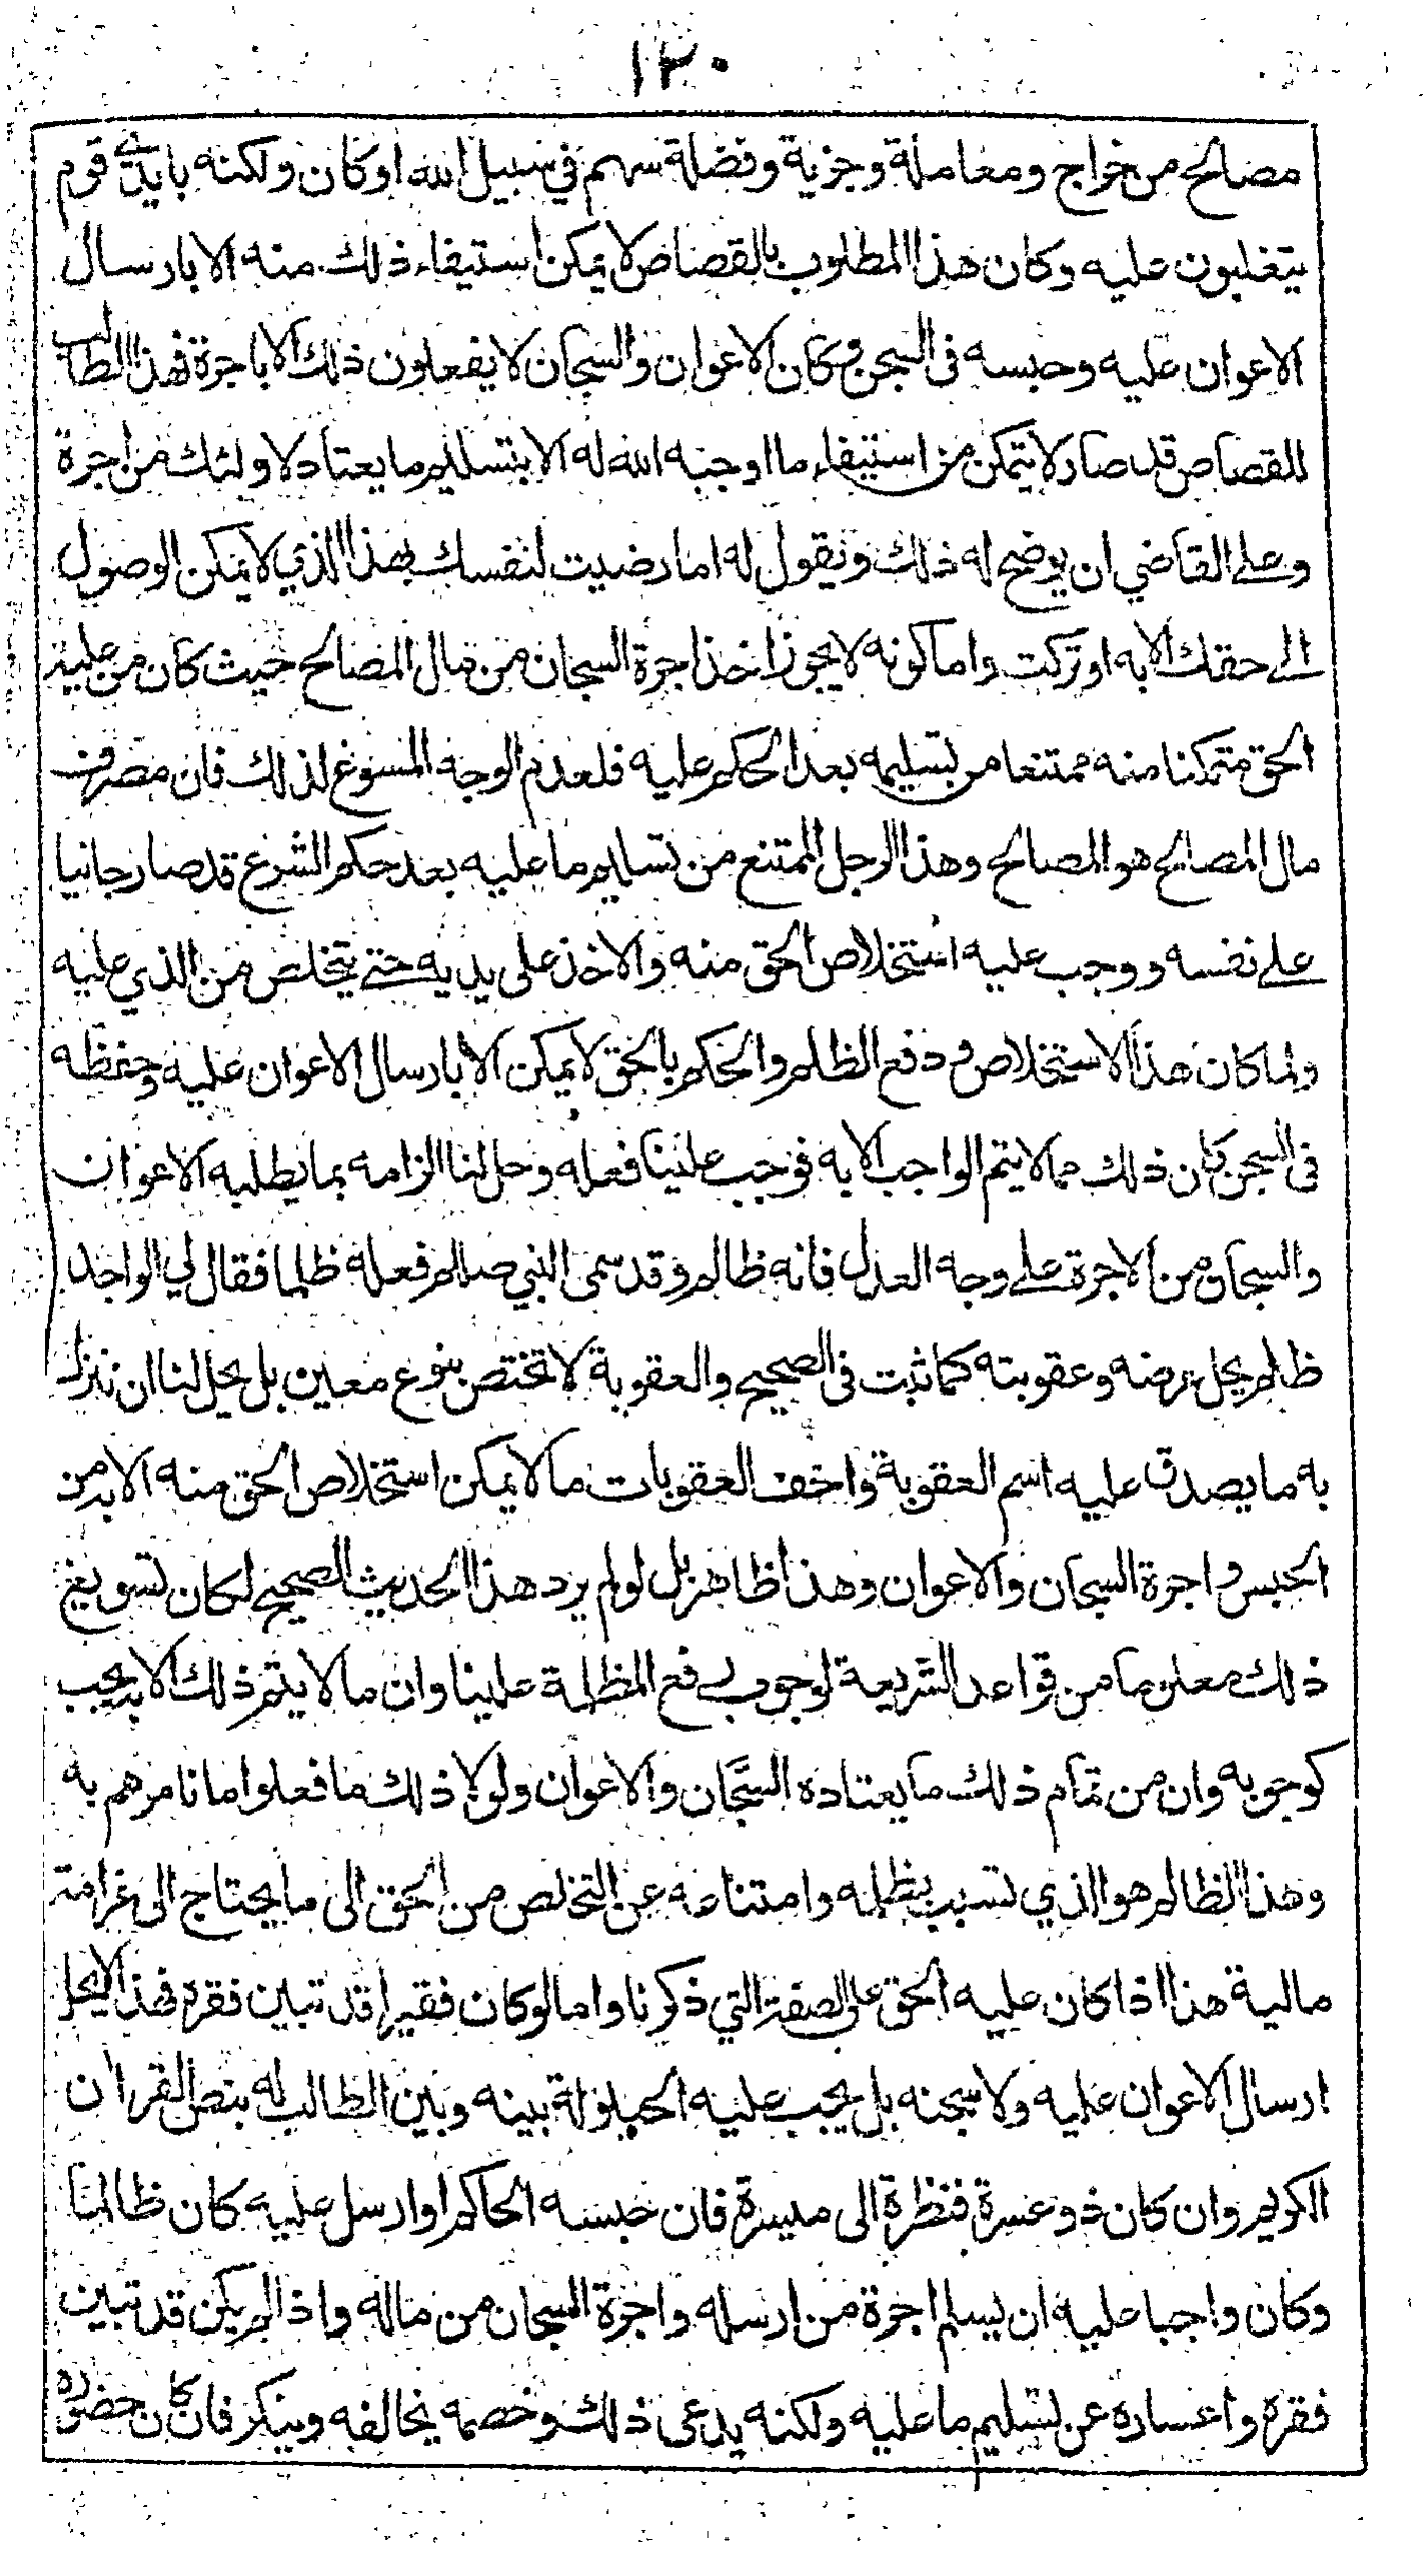 ١٣٠
مصالح من خراج ومعاملة وجزية وفضلة سهم في سبيل الله او كان ولكنه بايدى قوم
يتغلبون عليه وكان هذا المطلوب بالقصاص لا يمكن استيفاء ذلك منه الا بارسال
الاعوان عليه وحبسه فى السجن وكان الاعوان والسجان لا يفعلون ذلك الا باجرة فهذا الطالب
للقصاص قد صار لا يتمكن من استيفاء ما اوجبه الله له الا بتسليم ما يعتاده اولئك من اجرة
وعلى القاضي ان يوضح له ذلك ويقول له اما رضيت لنفسك بهذا الذي لا يمكن الوصول
الى حقك الا به او تركت واما كونه لا يجوز اخذ اجرة السجان من مال المصالح حيث كان من عليه
الحق متمكنا منه ممتنعا من تسليمه بعد الحكم عليه فلعدم الوجه المسوغ لذلك فان مصرف
مال المصالح هو المصالح وهذا الرجل الممتنع من تسليم ما عليه بعد حكم الشرع قد صار جانيا
على نفسه ووجب عليه استخلاص الحق منه والاخذ على يديه حتى يتخلص من الذي عليه
ولما كان هذا الاستخلاص ودفع الظلم والحكم بالحق لا يمكن الا بارسال الاعوان عليه وحفظه
فى السجن كان ذلك مما لا يتم الواجب الا به فوجب علينا فعله وحل لنا الزامه بما يطلبه الاعوان
والسجان من الاجرة على وجه العدل فانه ظالم وقد سمى النبي صللم فعله ظلما فقال لي الواجد
ظلم يحل عرضه وعقوبته كما ثبت فى الصحيح والعقوبة لا تختص بنوع معين بل يحل لنا ان ننزل
به ما يصدق عليه اسم العقوبة واخف العقوبات ما لا يمكن استخلاص الحق منه الا به من
الحبس واجرة السجان والاعوان وهذا ظاهر بل لو لم يرد هذا الحديث الصحيح لكان تسويغ
ذلك معلوما من قواعد الشريعة لوجوب دفع المظلمة علينا وان ما لا يتم ذلك الا به يجب
كوجوبه وان من تمام ذلك ما يعتاده السجان والاعوان ولولا ذلك ما فعلوا ما نامرهم به
وهذا الظالم هو الذي تسبب بظلمه وامتناعه عن التخلص من الحق الى ما يحتاج الى غرامة
مالية هذا اذا كان عليه الحق على الصفة التي ذكرنا واما لو كان فقيرا قد تبين فقره فهذا لا يحل
ارسال الاعوان عليه ولا سجنه بل يجب عليه الحيلولة بينه وبين الطالب له بنص القران
الكريم وان كان ذو عسرة فنظرة الى ميسرة فان حبسه الحاكم او ارسل عليه كان ظالما
وكان واجبا عليه ان يسلم اجرة من ارسله واجرة السجان من ماله واذا لم يكن قد تبين
فقره واعساره عن تسليم ما عليه ولكنه يدعى ذلك وخصمه يخالفه وينكر فان كان حضوره